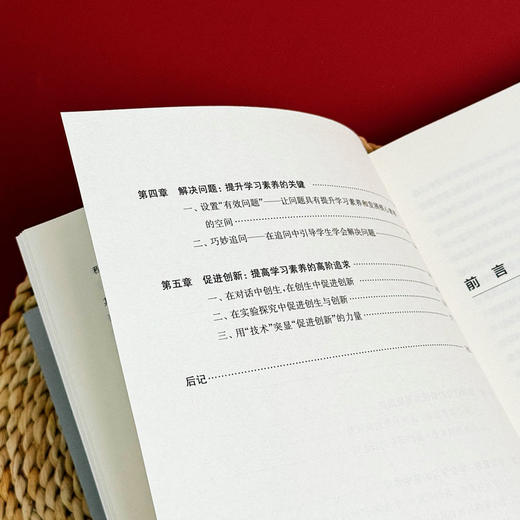 第四章　解决问题：提升学习素养的关键
一、设置“有效问题”——让问题具有提升学习素养和发展核心素养
的空间
二、巧妙追问——在追问中引导学生学会解决问题
第五章　促进创新：提高学习素养的高阶追求
一、在对话中创生，在创生中促进创新
二、在实验探究中促进创生与创新
三、用“技术”突显“促进创新”的力量
后记
前言